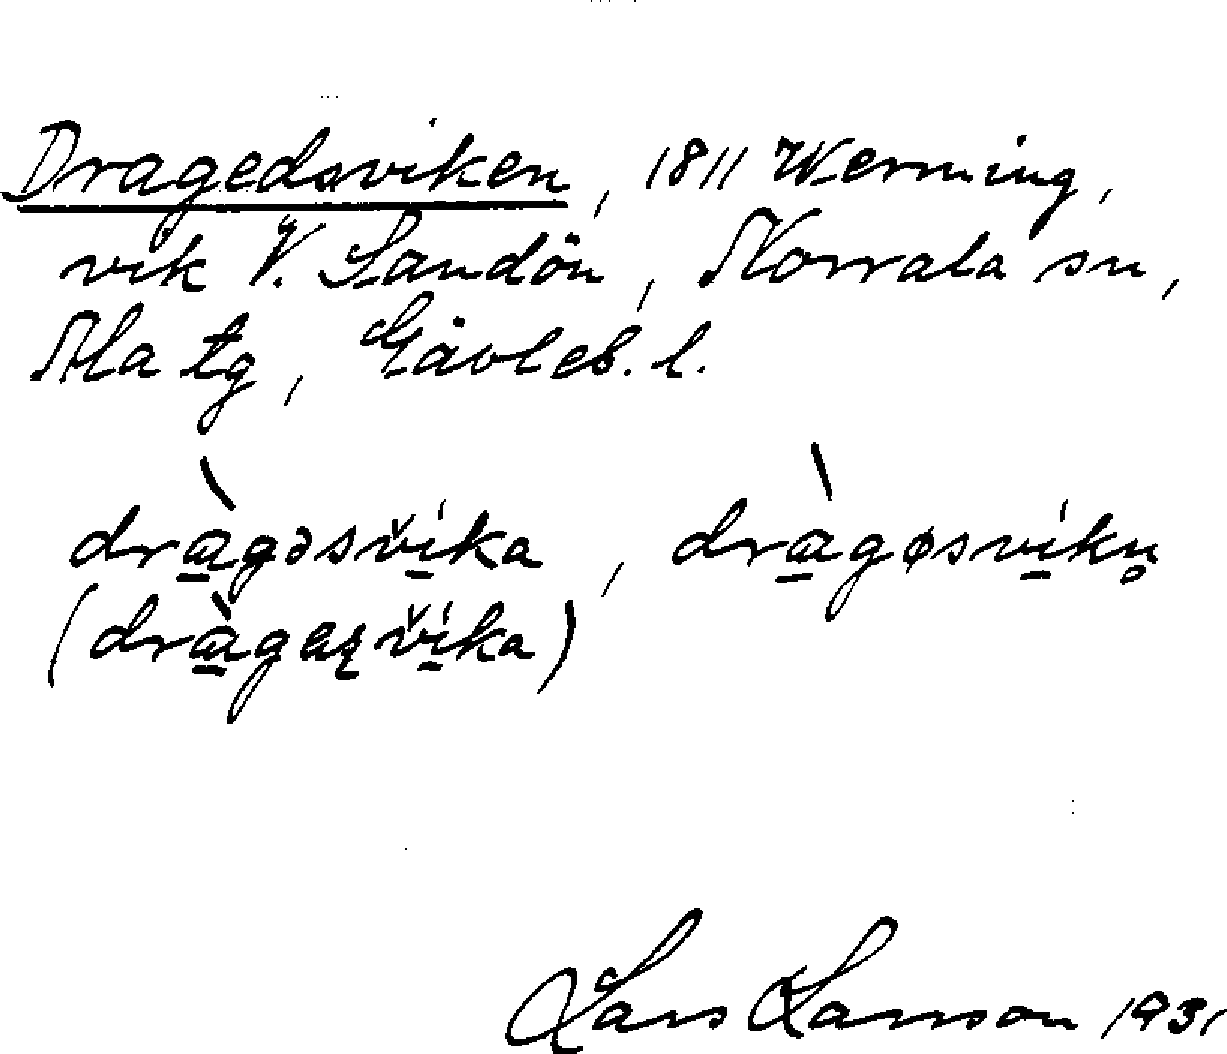 Dragedsviken, 1811 Werming,
vik V. Sandön, Norrala sn,
Ala tg, Gävleb. l.
dràgəsvíka, dràgøsvíkn̥
(dràgezvíka)
Lars Larsson 1931